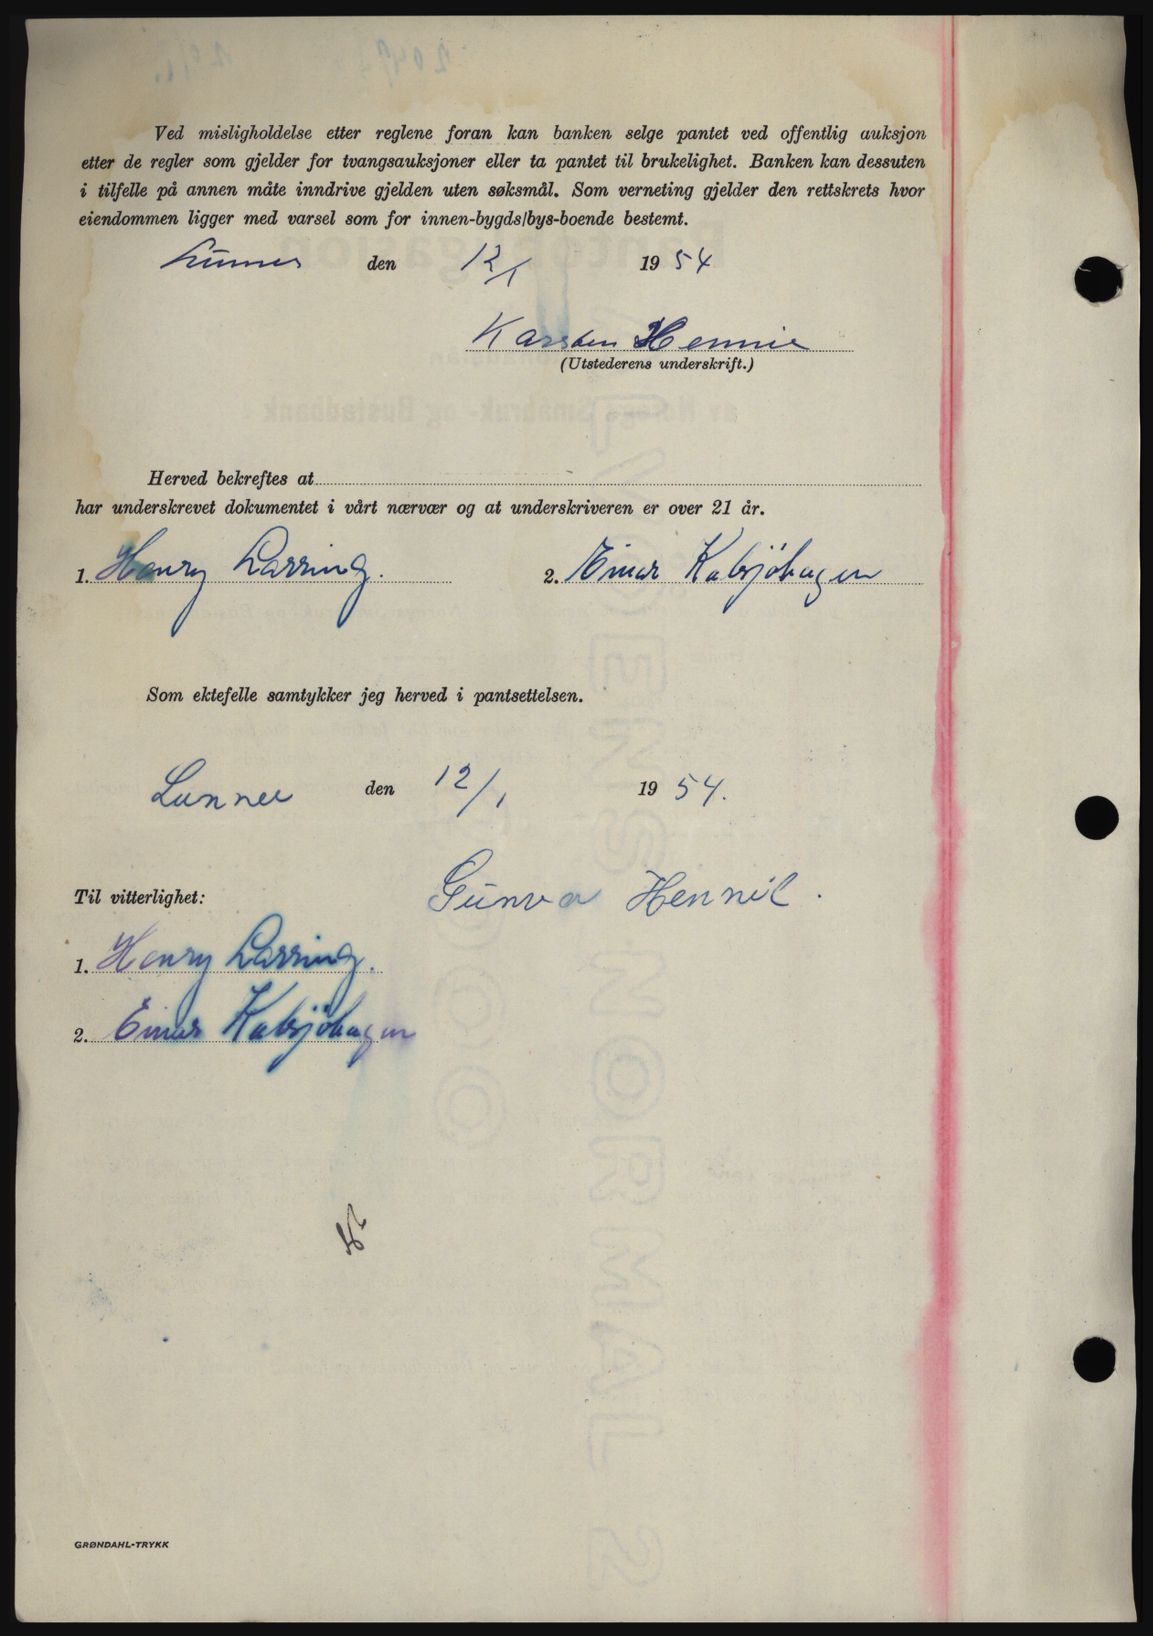 Ved misligholdelse etter reglene foran kan banken selge pantet ved offentlig auksjon
etter de regler som gjelder for tvangsauksjoner eller ta pantet til brukelighet. Banken kan dessuten
i tilfelle på annen måte inndrive gjelden uten søksmål. Som verneting gjelder den rettskrets hvor
eiendommen ligger med varsel som for innen-bygds/bys-boende bestemt.
den 12/1 1954
Karsten Hennie
(Utstederens underskrift.)
Herved bekreftes at
har underskrevet dokumentet i vårt nærvær og at underskriveren er over 21 år.
1. Henry Larring. 2. Einar Kalsjöhagen
Som ektefelle samtykker jeg herved i pantsettelsen.
Lunner den 12/1 1954.
Gunvor Hennie.
Til vitterlighet:
1. Henry Larring.
2. Einar Kalsjöhagen
GRØNDAHL-TRYKK